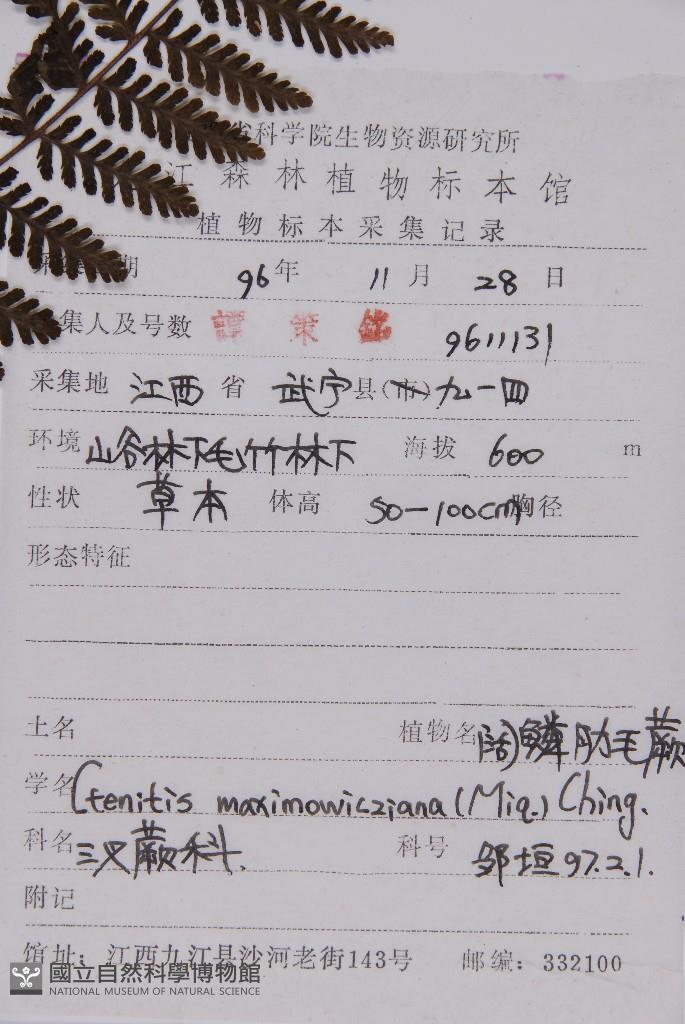 省科学院生物资源研究所
江森林植物标本馆
植物标本采集记录
采集日期 96年 11月 28日
集人及号数 譚策铭 9611131
采集地 江西省 武宁县(市)九一四
环境 山谷林下毛竹林下 海拔 600 m
性状 草本 体高 50-100cm 胸径
形态特征
土名 植物名 阔鳞肋毛蕨
学名 Ctenitis maximowicziana (Miq.) Ching.
科名 三叉蕨科. 科号 邹垣 97.2.1.
附记
馆址: 江西九江县沙河老街143号 邮编: 332100
國立自然科學博物館
NATIONAL MUSEUM OF NATURAL SCIENCE